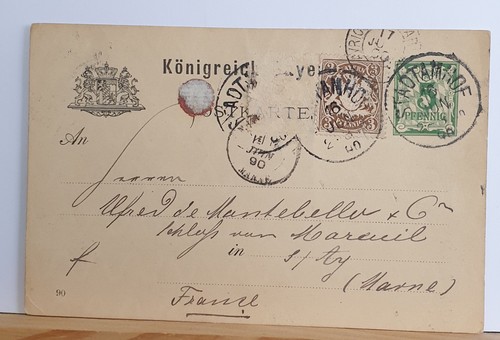 Königreich Bayern
POSTKARTE
3 3
STADTAMHOF
STADTAMHOF
5
PFENNIG
JUIN
90
An
Herren
Alfred de Montebello & Cie
Schloß von Mareuil
in s/Ay
(Marne)
France
90